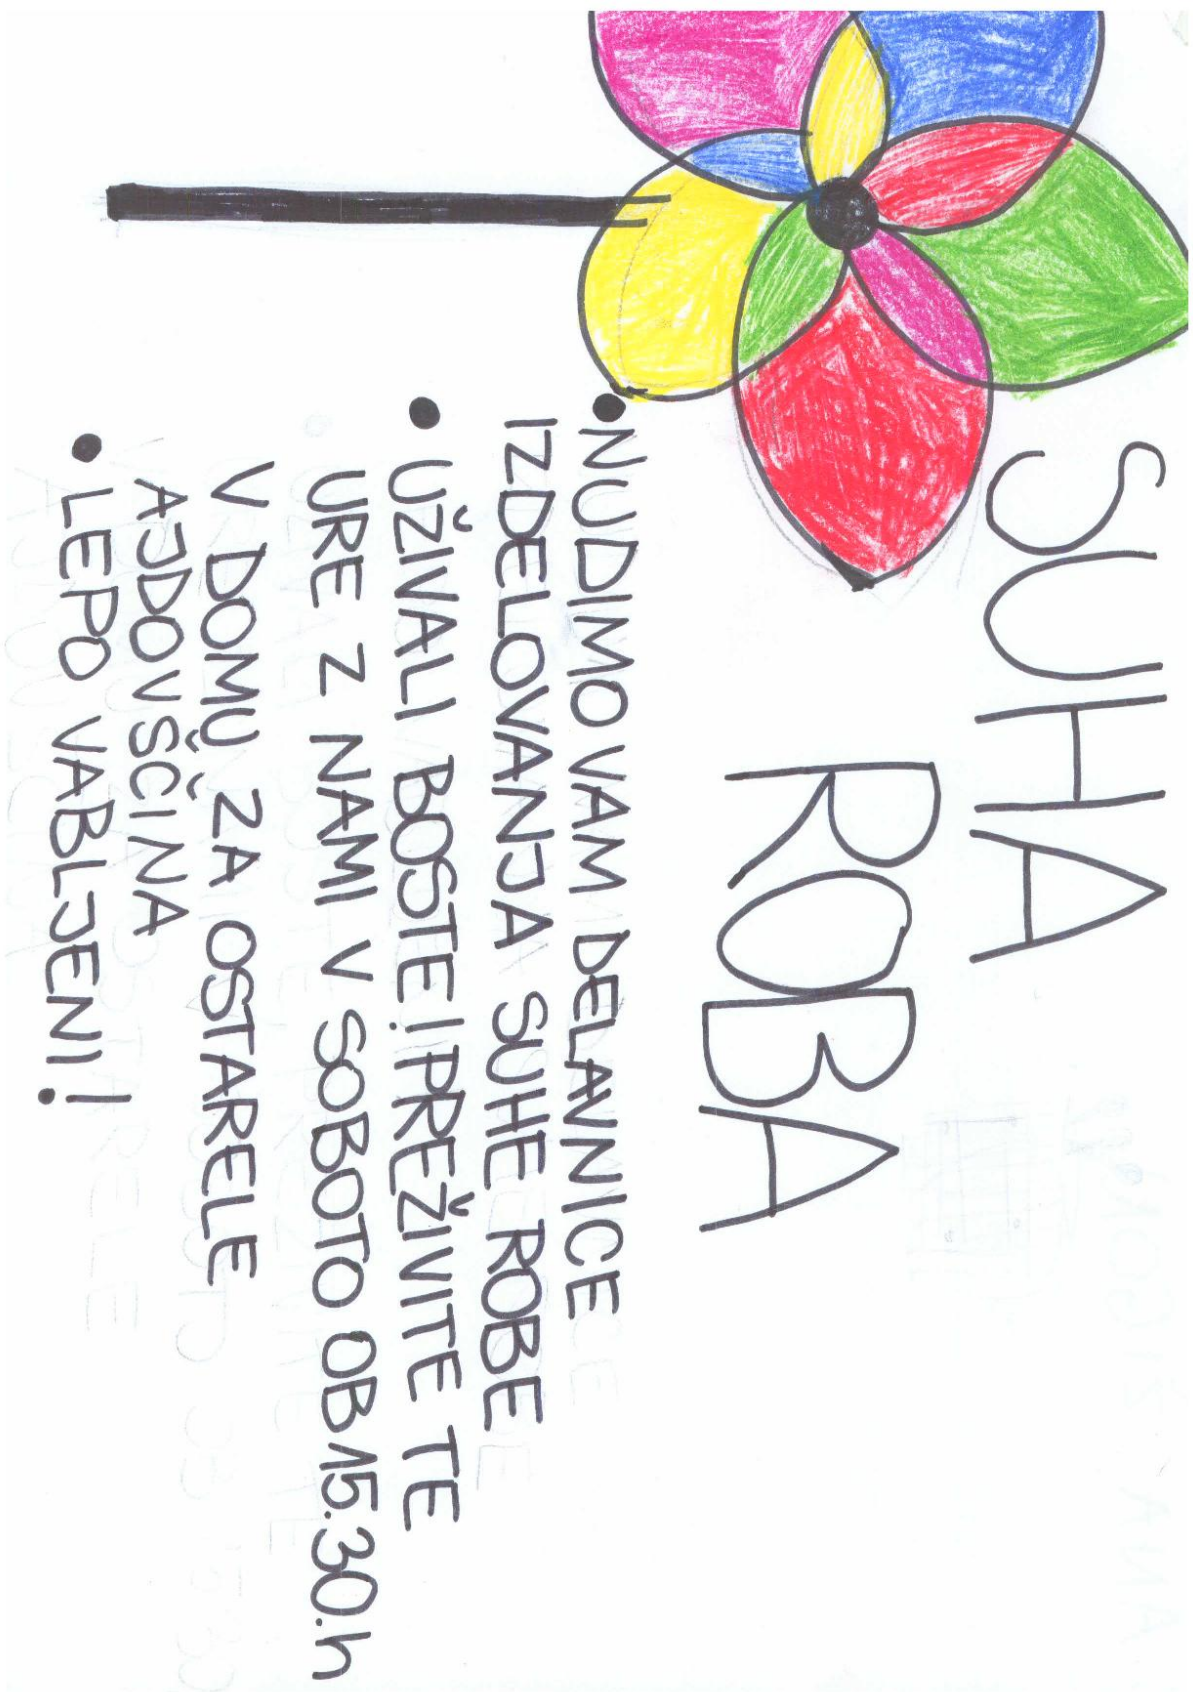 SUHA
ROBA
• NUDIMO VAM DELAVNICE
IZDELOVANJA SUHE ROBE
• UŽIVALI BOSTE! PREŽIVITE TE
URE Z NAMI V SOBOTO OB 15.30.h
V DOMU ZA OSTARELE
AJDOVŠČINA
• LEPO VABLJENI!